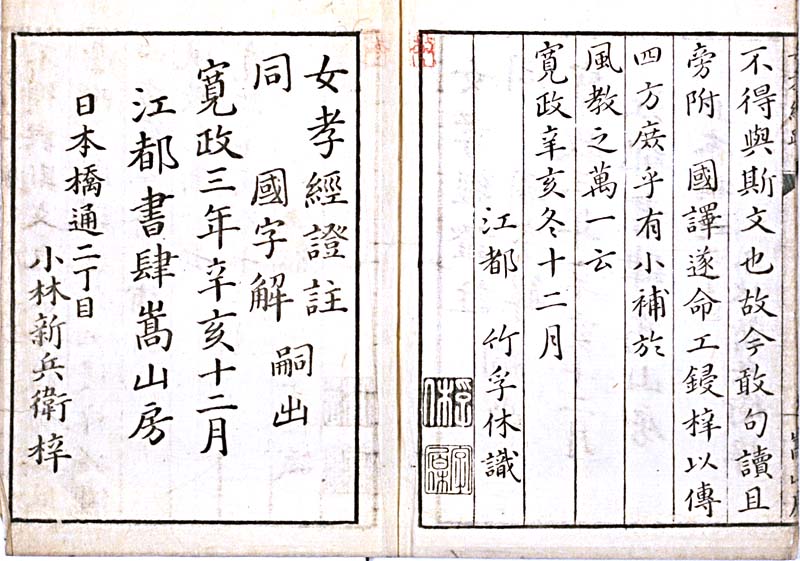 不得與斯文也故今敢句讀且
旁附 國譯遂命工鋟梓以傳
四方庶乎有小補於
風教之萬一云
寛政辛亥冬十二月
江都 竹孚休識
女孝經證註
同 國字解 嗣出
寛政三年辛亥十二月
江都書肆嵩山房
日本橋通二丁目
小林新兵衛梓